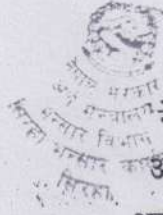 नेपाल सरकार
अर्थ मन्त्रालय
भन्सार विभाग
सिरहा भन्सार
सिरहा